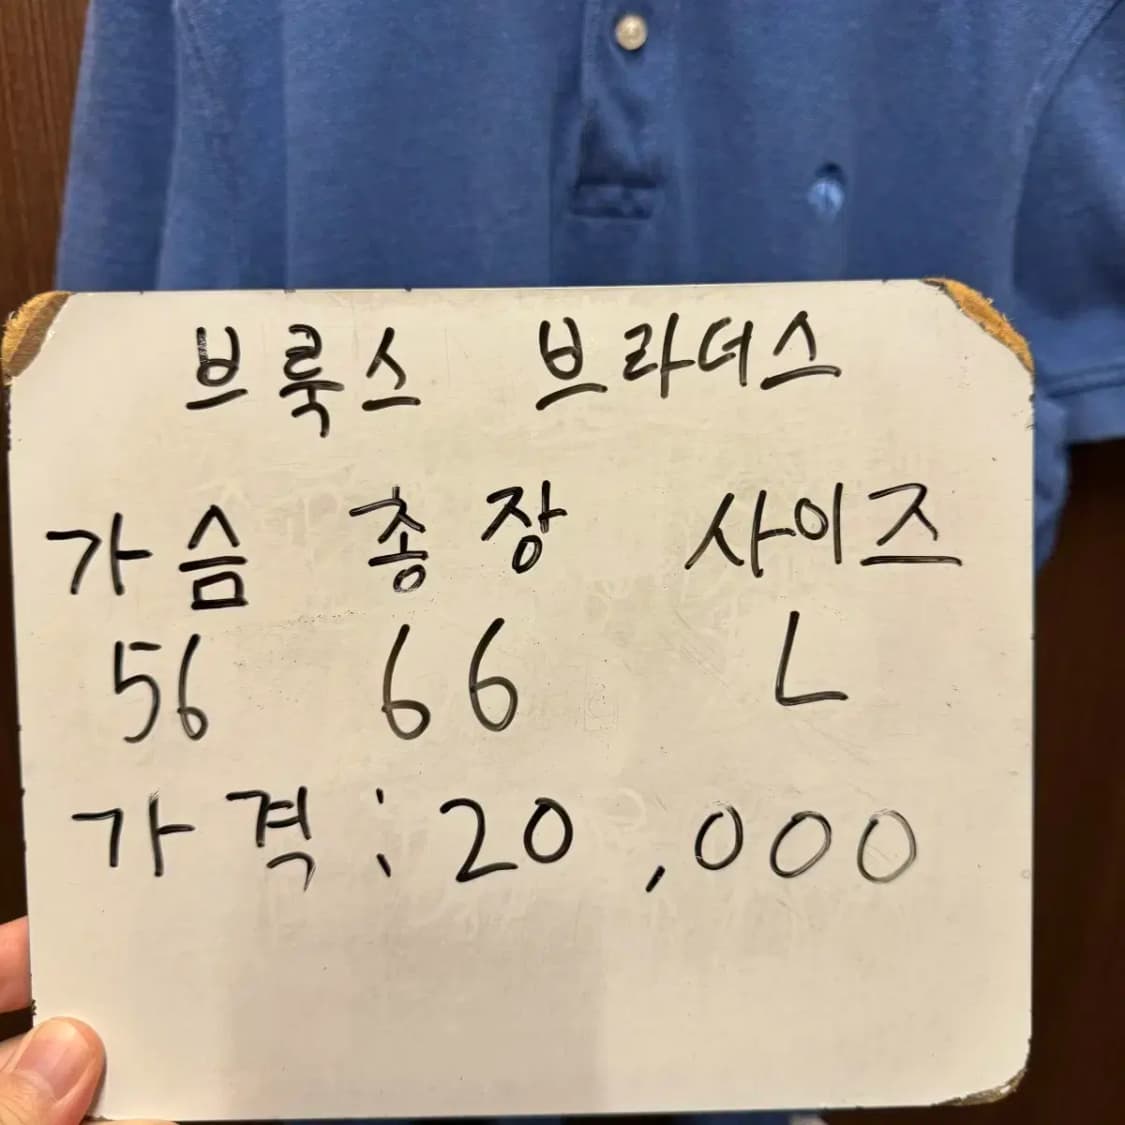 브룩스 브라더스
가슴 총장 사이즈
56 66 L
가격 : 20,000